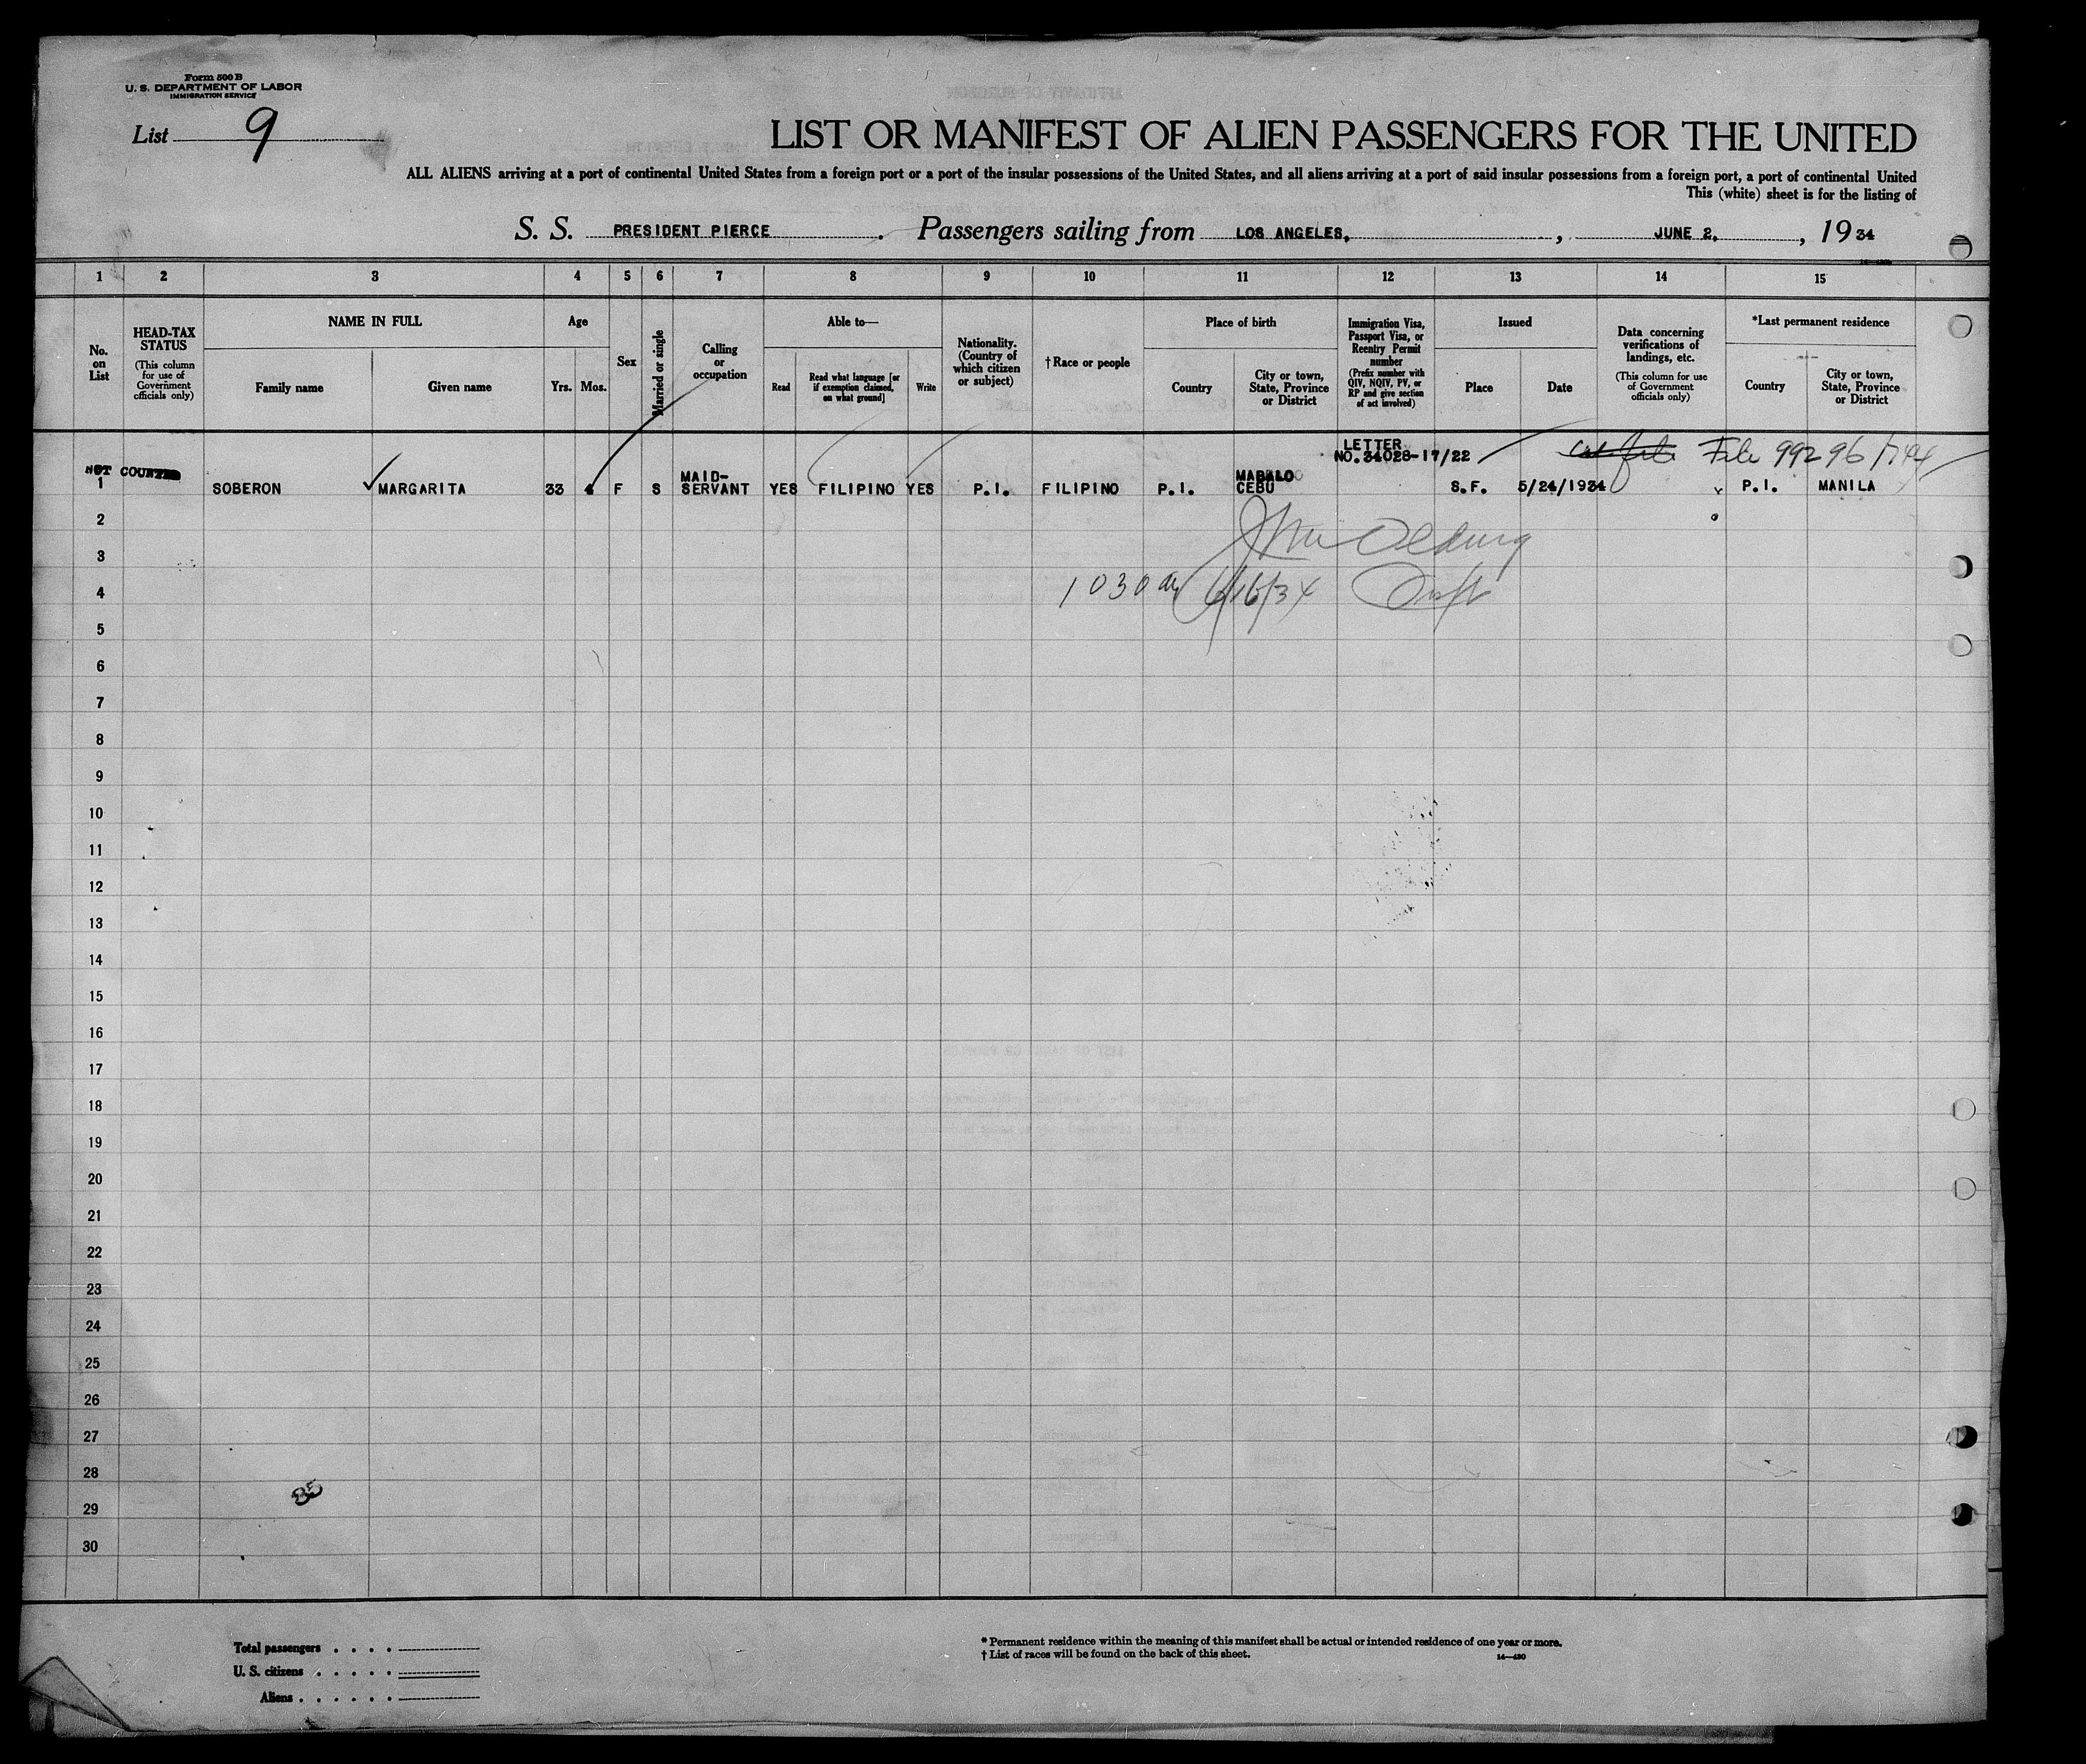 Form 500 B
U. S. DEPARTMENT OF LABOR
IMMIGRATION SERVICE
List 9
LIST OR MANIFEST OF ALIEN PASSENGERS FOR THE UNITED
ALL ALIENS arriving at a port of continental United States from a foreign port or a port of the insular possessions of the United States, and all aliens arriving at a port of said insular possessions from a foreign port, a port of continental United
This (white) sheet is for the listing of
S. S. PRESIDENT PIERCE . Passengers sailing from LOS ANGELES, , JUNE 2, , 19 34
1 2 3 4 5 6 7 8 9 10 11 12 13 14 15
No. on List
HEAD-TAX STATUS
(This column for use of Government officials only)
NAME IN FULL
Family name
Given name
Age
Yrs.
Mos.
Sex
Married or single
Calling or occupation
Able to—
Read
Read what language [or if exemption claimed, on what ground]
Write
Nationality. (Country of which citizen or subject)
† Race or people
Place of birth
Country
City or town, State, Province or District
Immigration Visa, Passport Visa, or Reentry Permit number
(Prefix number with QIV, NQIV, PV, or RP and give section of act involved)
Issued
Place
Date
Data concerning verifications of landings, etc.
(This column for use of Government officials only)
*Last permanent residence
Country
City or town, State, Province or District
LETTER
NO. 34028-17/22
File 99296/
NOT COUNTED
1 SOBERON MARGARITA 33 4 F S MAID-SERVANT YES FILIPINO YES P.I. FILIPINO P.I. MABALO CEBU S.F. 5/24/1934 P.I. MANILA
2
3
1030 am 6/16/34
4
5
6
7
8
9
10
11
12
13
14
15
16
17
18
19
20
21
22
23
24
25
26
27
28
29
30
Total passengers . . . .
U. S. citizens . . . . .
Aliens . . . . . .
* Permanent residence within the meaning of this manifest shall be actual or intended residence of one year or more.
† List of races will be found on the back of this sheet.
14—430